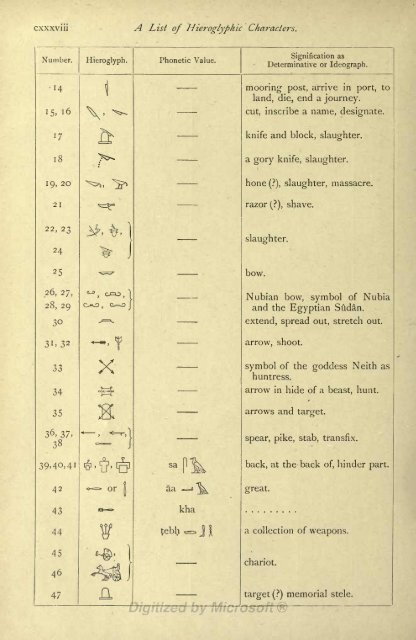 cxxxviii A List of Hieroglyphic Characters.
Number. Hieroglyph. Phonetic Value. Signification as
Determinative or Ideograph.
14 — mooring post, arrive in port, to
land, die, end a journey.
15, 16 — cut, inscribe a name, designate.
17 — knife and block, slaughter.
18 — a gory knife, slaughter.
19, 20 — hone (?), slaughter, massacre.
21 — razor (?), shave.
22, 23
— slaughter.
24
25 — bow.
26, 27, — Nubian bow, symbol of Nubia
28, 29 and the Egyptian Sûdân.
30 — extend, spread out, stretch out.
31, 32 — arrow, shoot.
33 — symbol of the goddess Neith as
huntress.
34 — arrow in hide of a beast, hunt.
35 — arrows and target.
36, 37,
38 — spear, pike, stab, transfix.
39, 40, 41 sa back, at the back of, hinder part.
42 or āa great.
43 kha .........
44 ṭebḥ a collection of weapons.
45
— chariot.
46
47 — target (?) memorial stele.
Digitized by Microsoft ®